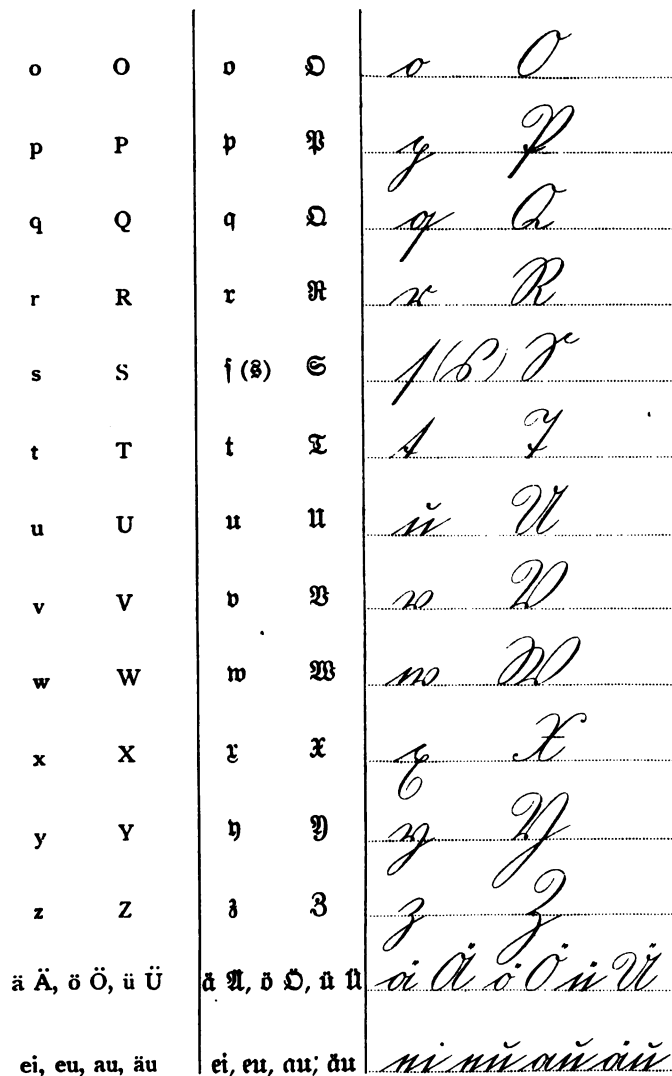 o O o O o O
p P p P p P
q Q q Q q Q
r R r R r R
s S ſ (s) S ſ (s) S
t T t T t T
u U u U u U
v V v V v V
w W w W w W
x X x X x X
y Y y Y y Y
z Z z Z z Z
ä Ä, ö Ö, ü Ü ä Ä, ö Ö, ü Ü ä Ä ö Ö ü Ü
ei, eu, au, äu ei, eu, au; äu ei eu au äu